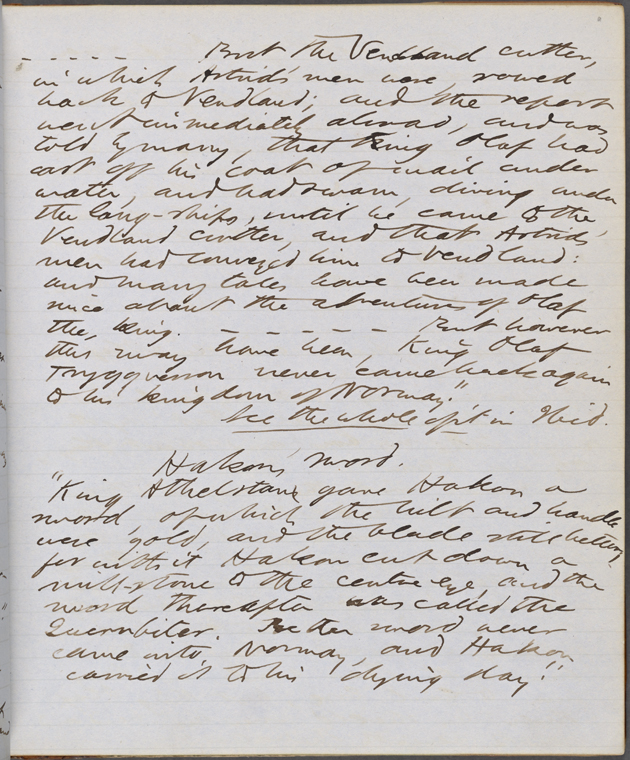 - - - - - But the Vendland cutter,
in which Astrid's men were, rowed
back to Vendland; and the report
went immediately abroad, and was
told by many, that King Olaf had
cast off his coat of mail under
water, and had swam, diving under
the long-ships, until he came to the
Vendland cutter, and that Astrid's
men had conveyed him to Vendland:
and many tales have been made
since about the adventures of Olaf
the, king. - - - - - - But however
this may have been, King Olaf
Tryggvesson never came back again
to his kingdom of Norway."
See the whole of it in Ibid.
Hakon's sword.
"King Athelstane gave Hakon a
sword, of which the hilt and handle
were gold, and the blade still better;
for with it Hakon cut down a
mill-stone to the centre eye, and the
sword thereafter was called the
Quernbiter. Better sword never
came into Norway, and Hakon
carried it to his dying day."